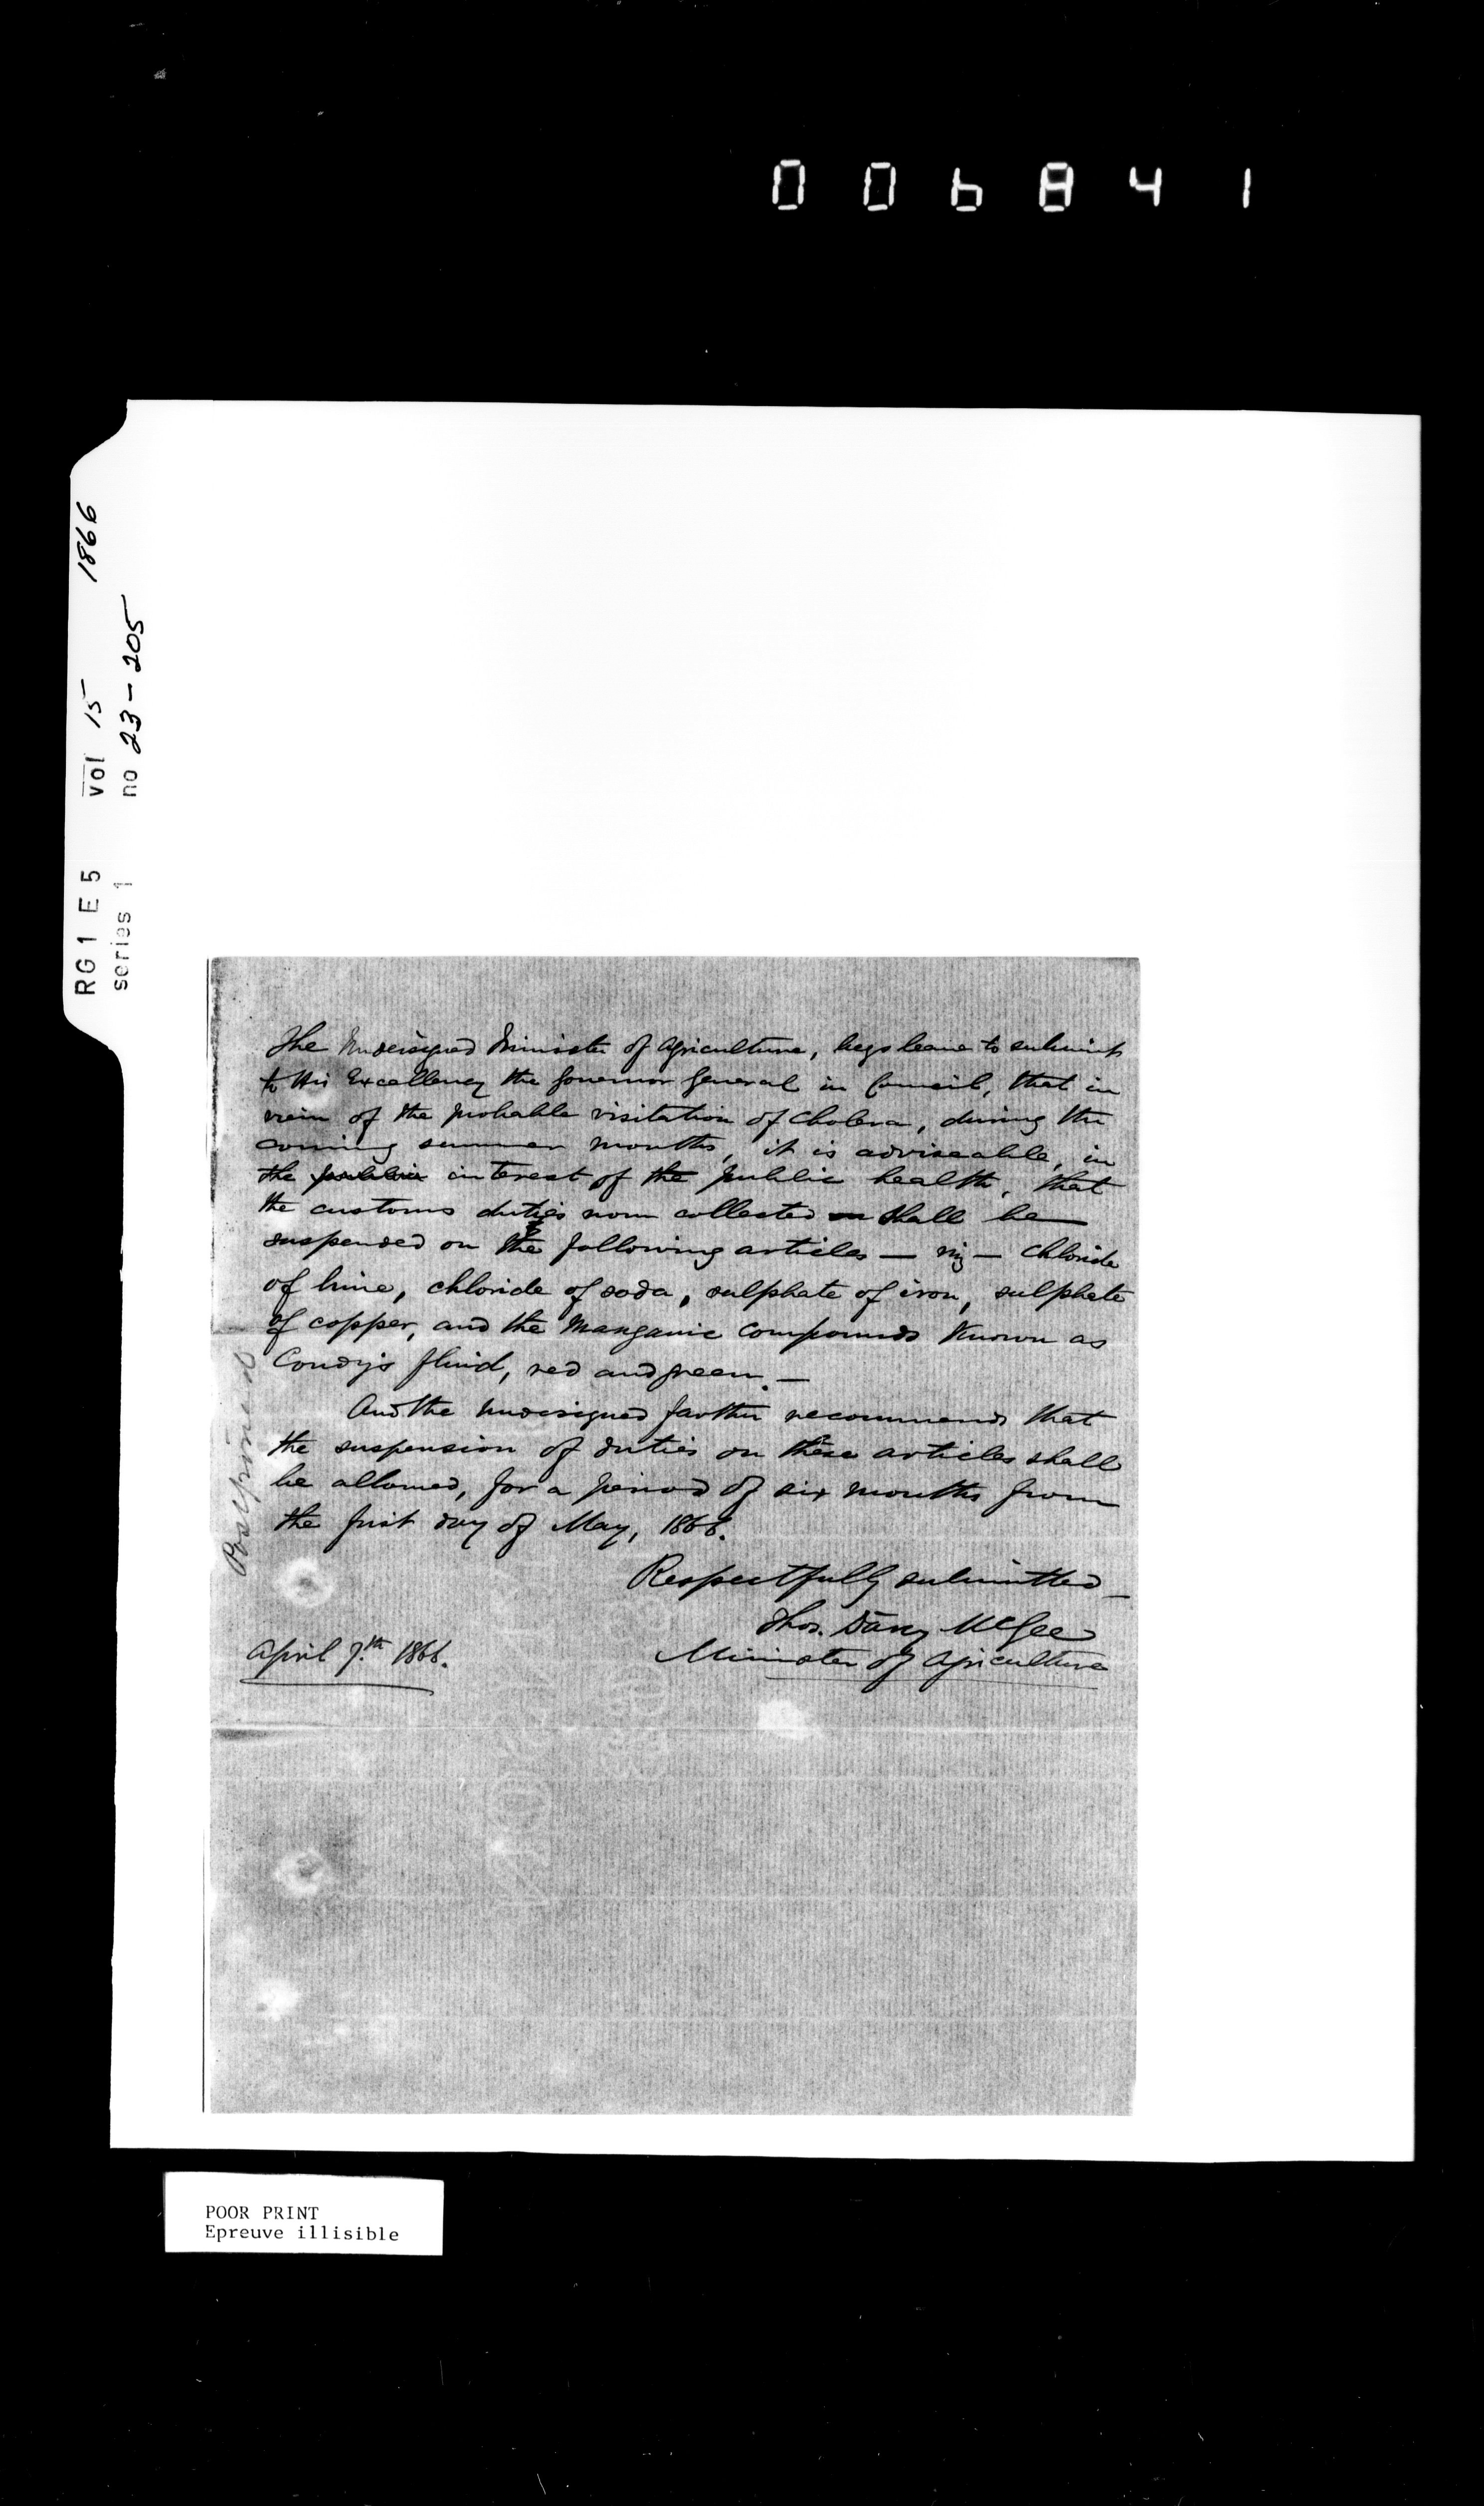 006841
RG1 E5 vol 15 1866
series 1 no 23-205
The Undersigned Minister of Agriculture, begs leave to submit
to His Excellency the Governor General in Council, that in
view of the probable visitation of Cholera, during the
coming summer months, it is adviseable, in
the public interest of the public health, that
the customs duties now collected on shall be
suspended on the following articles — viz — Chloride
of lime, chloride of soda, sulphate of iron, sulphate
of copper, and the Manganic compounds known as
Condy's fluid, red and green. —
And the undersigned farther recommends that
the suspension of duties on these articles shall
be allowed, for a period of six months from
the first day of May, 1866.
Respectfully submitted —
Thos. D'arcy McGee
Minister of Agriculture
April 7.th 1866.
Postponed
POOR PRINT
Epreuve illisible